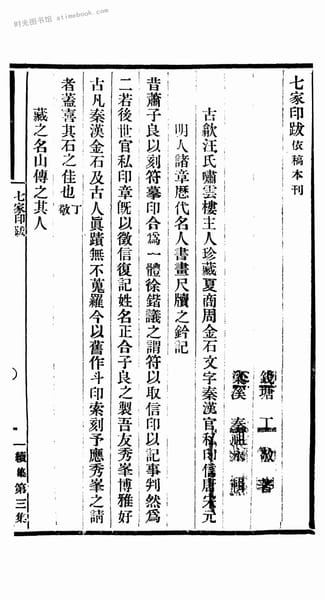 时光图书馆 atimebook.com
七家印跋 依稿本刊
錢塘 丁敬 著
秦祖永 輯
古歙汪氏嘯雲樓主人珍藏夏商周金石文字秦漢官私印信唐宋元
明人諸章歷代名人書畫尺牘之鈐記
昔蕭子良以刻符摹印合為一體徐鍇議之謂符以取信印以記事判然為
二若後世官私印章既以徵信復記姓名正合子良之製吾友秀峯博雅好
古凡秦漢金石及古人眞蹟無不蒐羅今以舊作斗印索刻予應秀峯之請
者蓋喜其石之佳也 丁敬
藏之名山傳之其人
七家印跋
一
續集 第三集